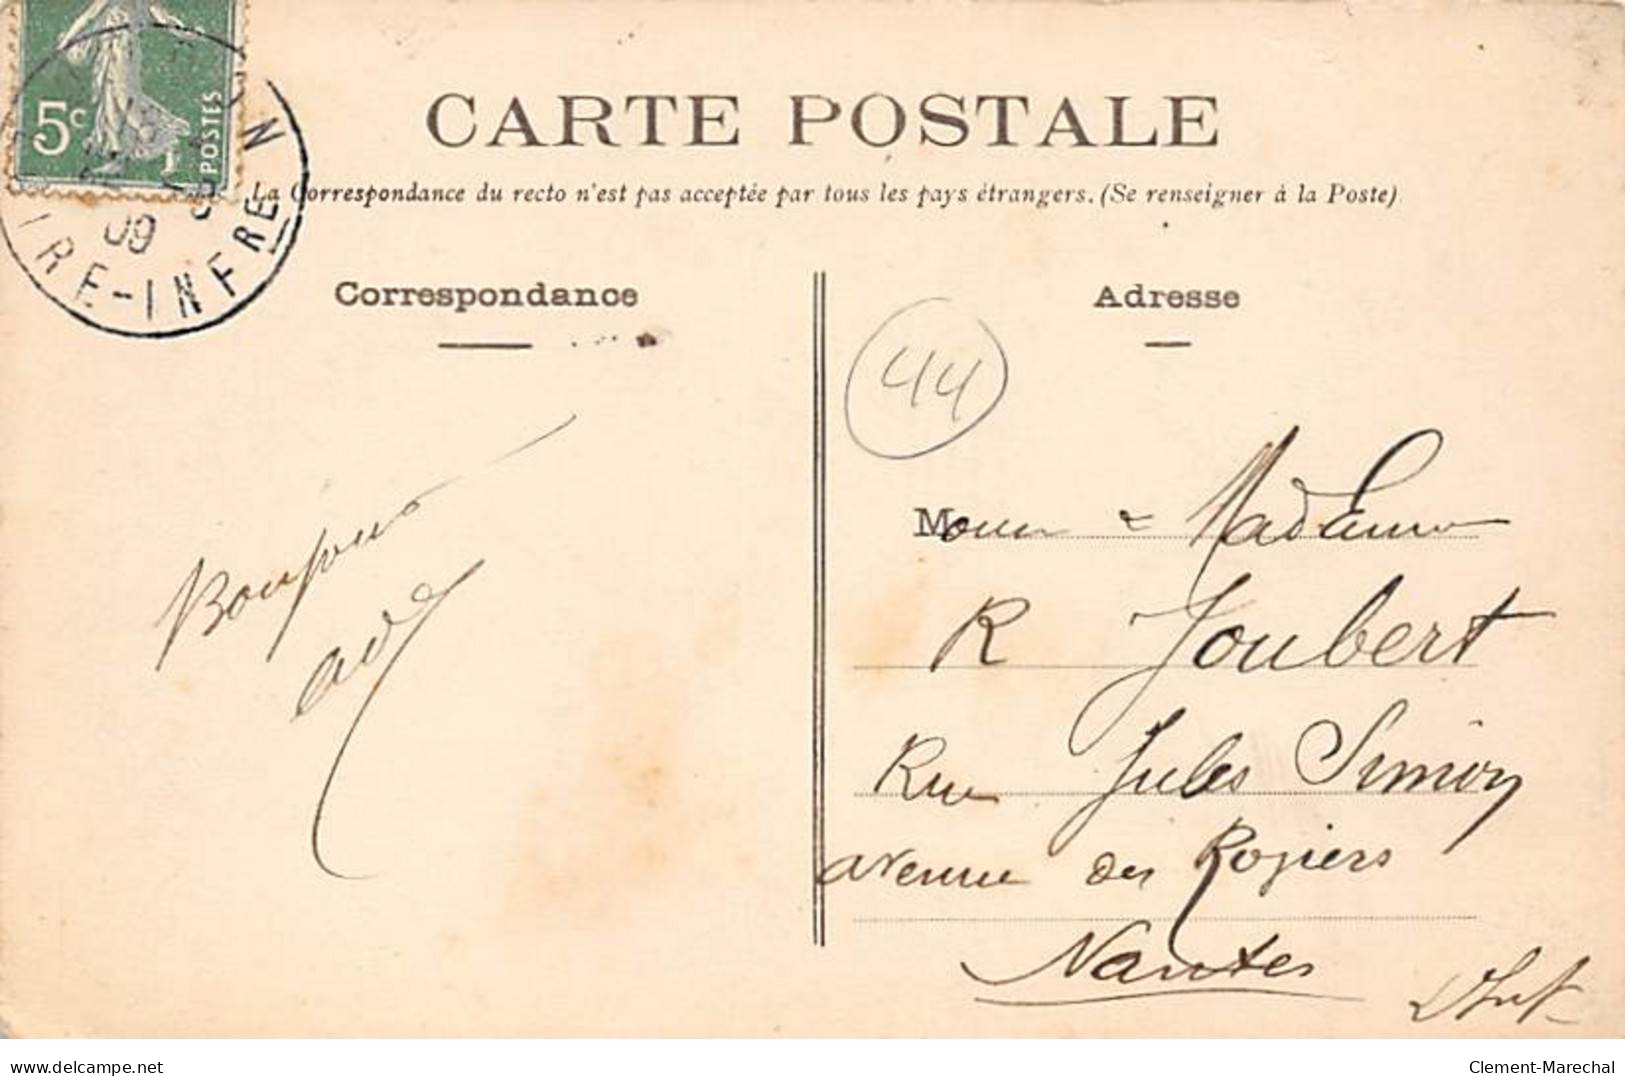 5c
POSTES
09
IRE-INFRE
CARTE POSTALE
La Correspondance du recto n'est pas acceptée par tous les pays étrangers. (Se renseigner à la Poste)
Correspondance
Adresse
44
Bonjour
M
Madame
R Joubert
Rue Jules Simon
avenue des Rosiers
Nantes
Clement-Marechal
delcampe.net